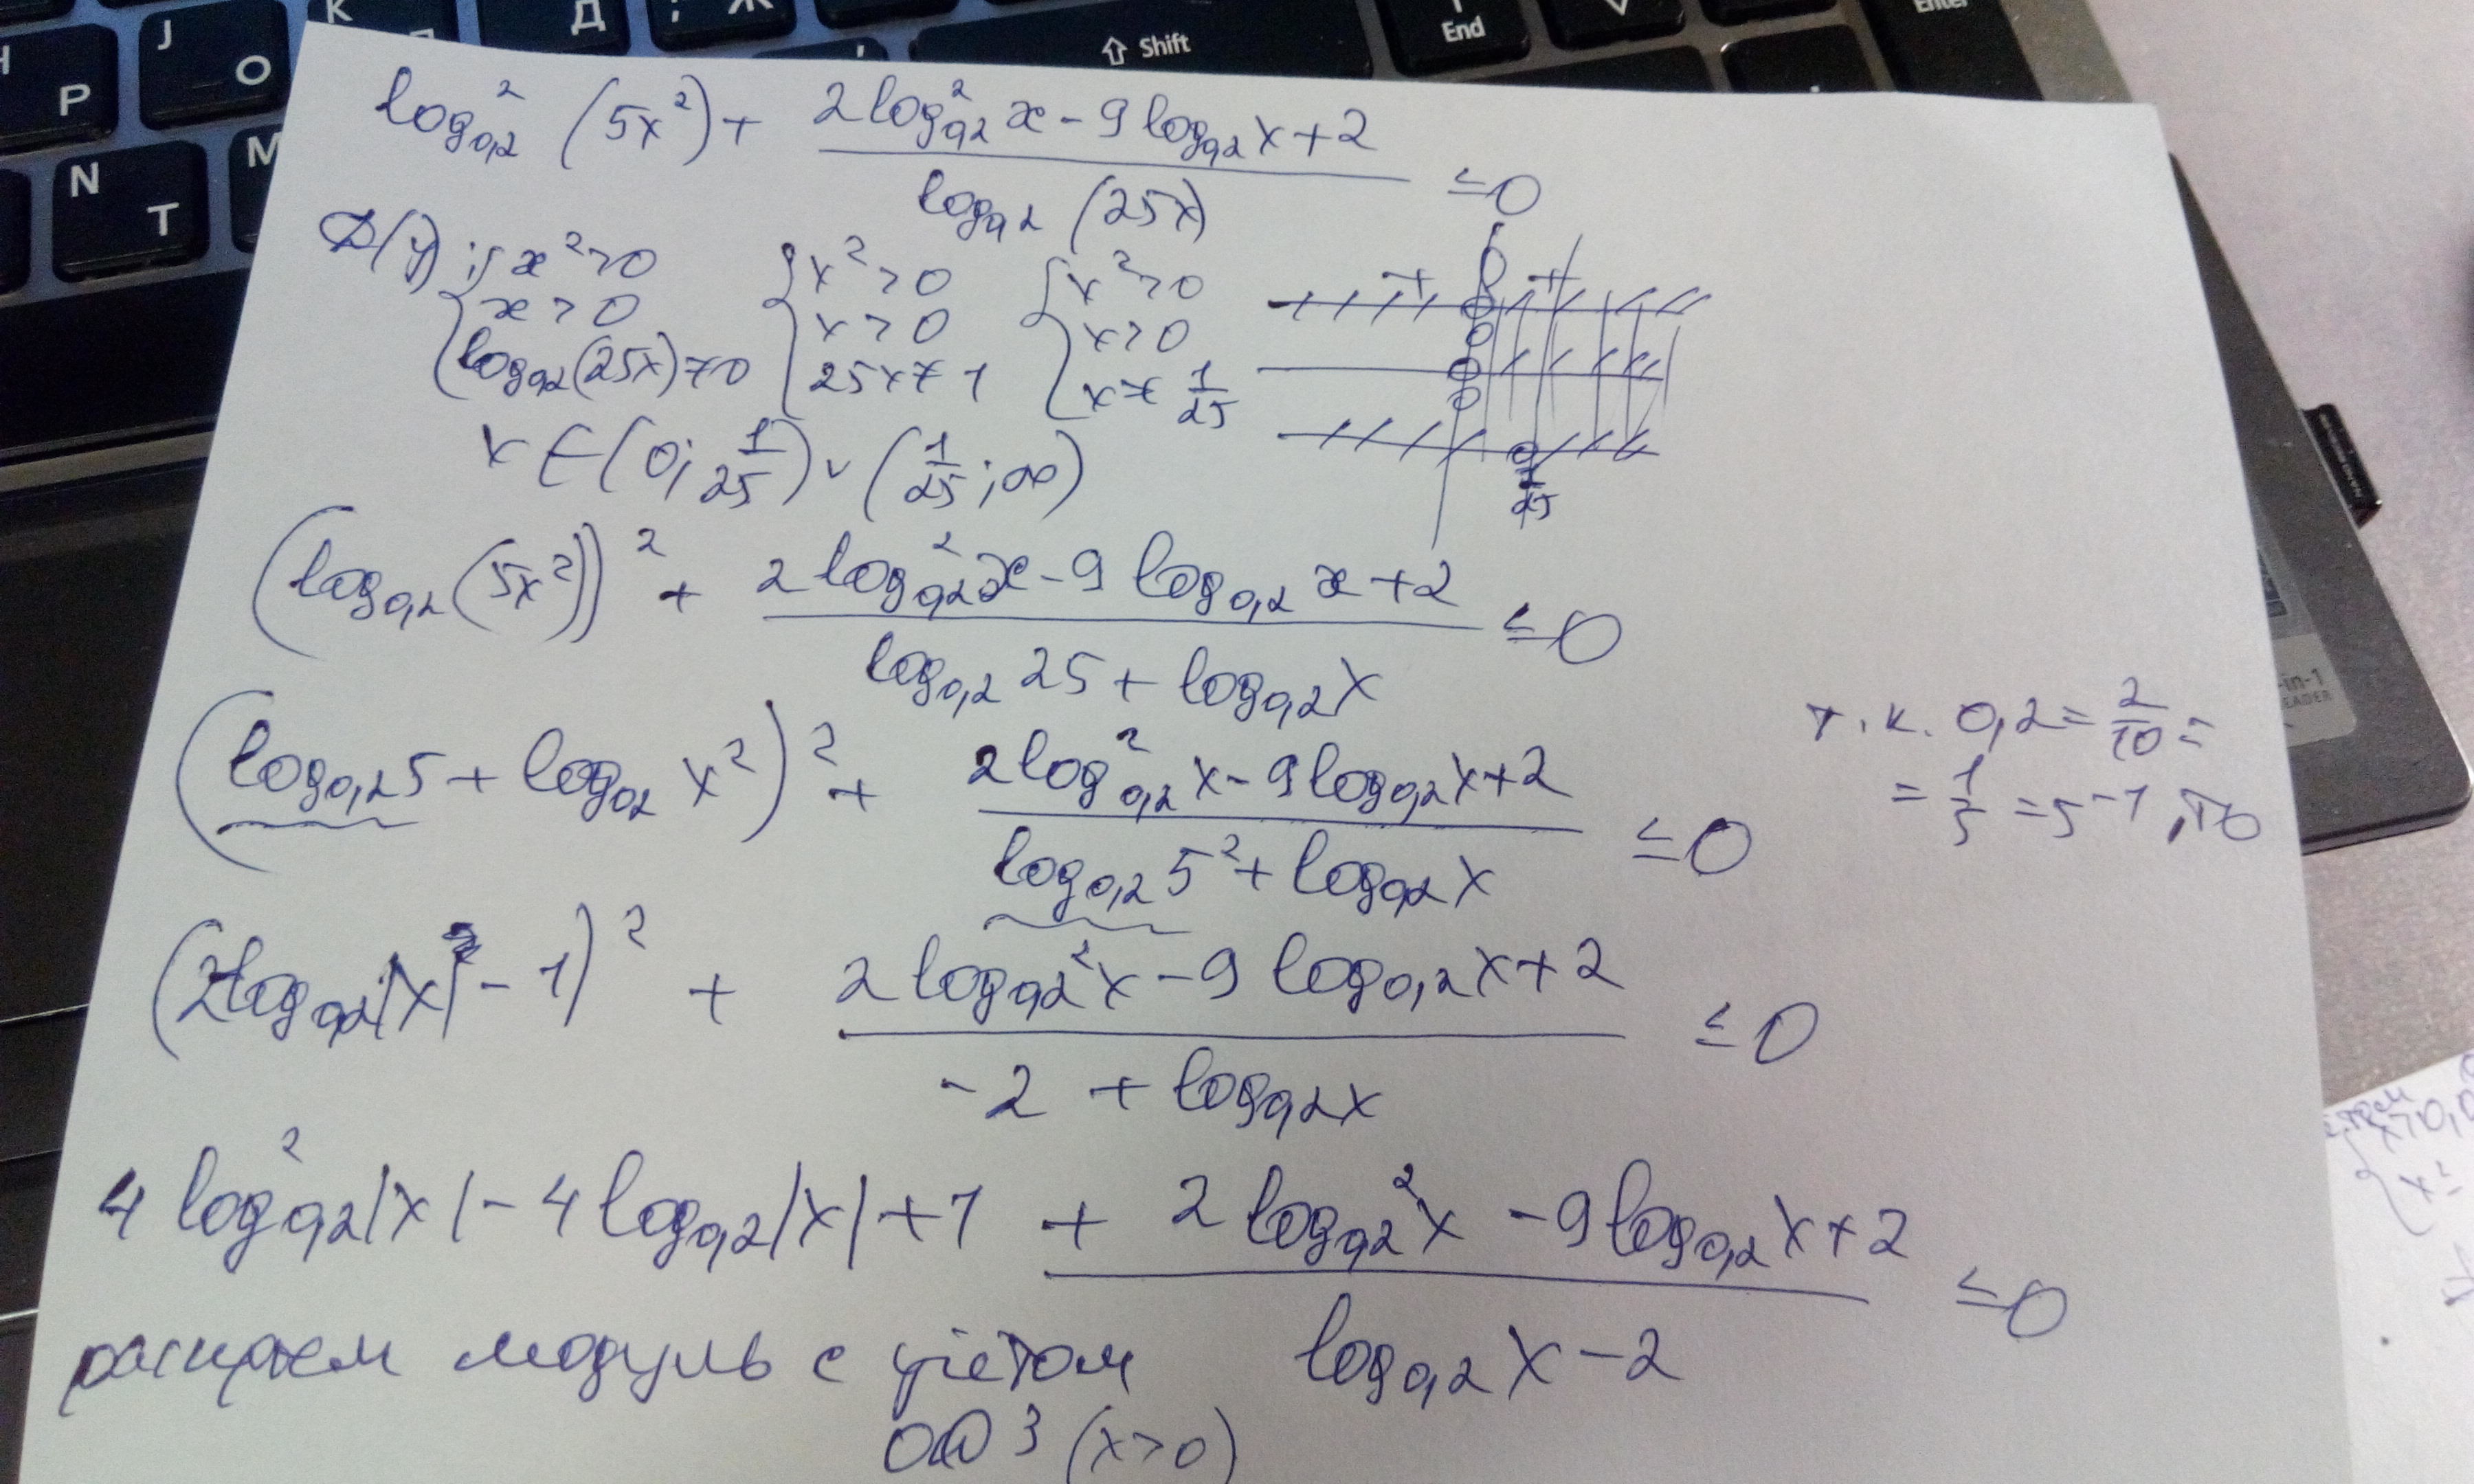 J
О
K
Д
;
Ж
⇧ Shift
End
Enter
Р
N
Т
M
log²₀,₂ (5x²) + (2log²₀,₂ x - 9 log₀,₂ x + 2) / log₀,₂ (25x) ≤ 0
D(y): { x² > 0 { x² > 0 { x² > 0
x > 0 x > 0 x > 0
log₀,₂(25x) ≠ 0 25x ≠ 1 x ≠ 1/25
+ +
0
1/25
x ∈ (0; 1/25) ∪ (1/25; ∞)
(log₀,₂(5x²))² + (2 log²₀,₂ x - 9 log₀,₂ x + 2) / (log₀,₂ 25 + log₀,₂ x) ≤ 0
(log₀,₂ 5 + log₀,₂ x²)² + (2 log²₀,₂ x - 9 log₀,₂ x + 2) / (log₀,₂ 5² + log₀,₂ x) ≤ 0
т.к. 0,2 = 2/10 =
= 1/5 = 5⁻¹, то
(2log₀,₂|x| - 1)² + (2 log₀,₂² x - 9 log₀,₂ x + 2) / (-2 + log₀,₂ x) ≤ 0
4 log²₀,₂|x| - 4 log₀,₂|x| + 1 + (2 log₀,₂² x - 9 log₀,₂ x + 2) / (log₀,₂ x - 2) ≤ 0
раскроем модуль с учётом
ОДЗ (x > 0)
-in-1
EADER